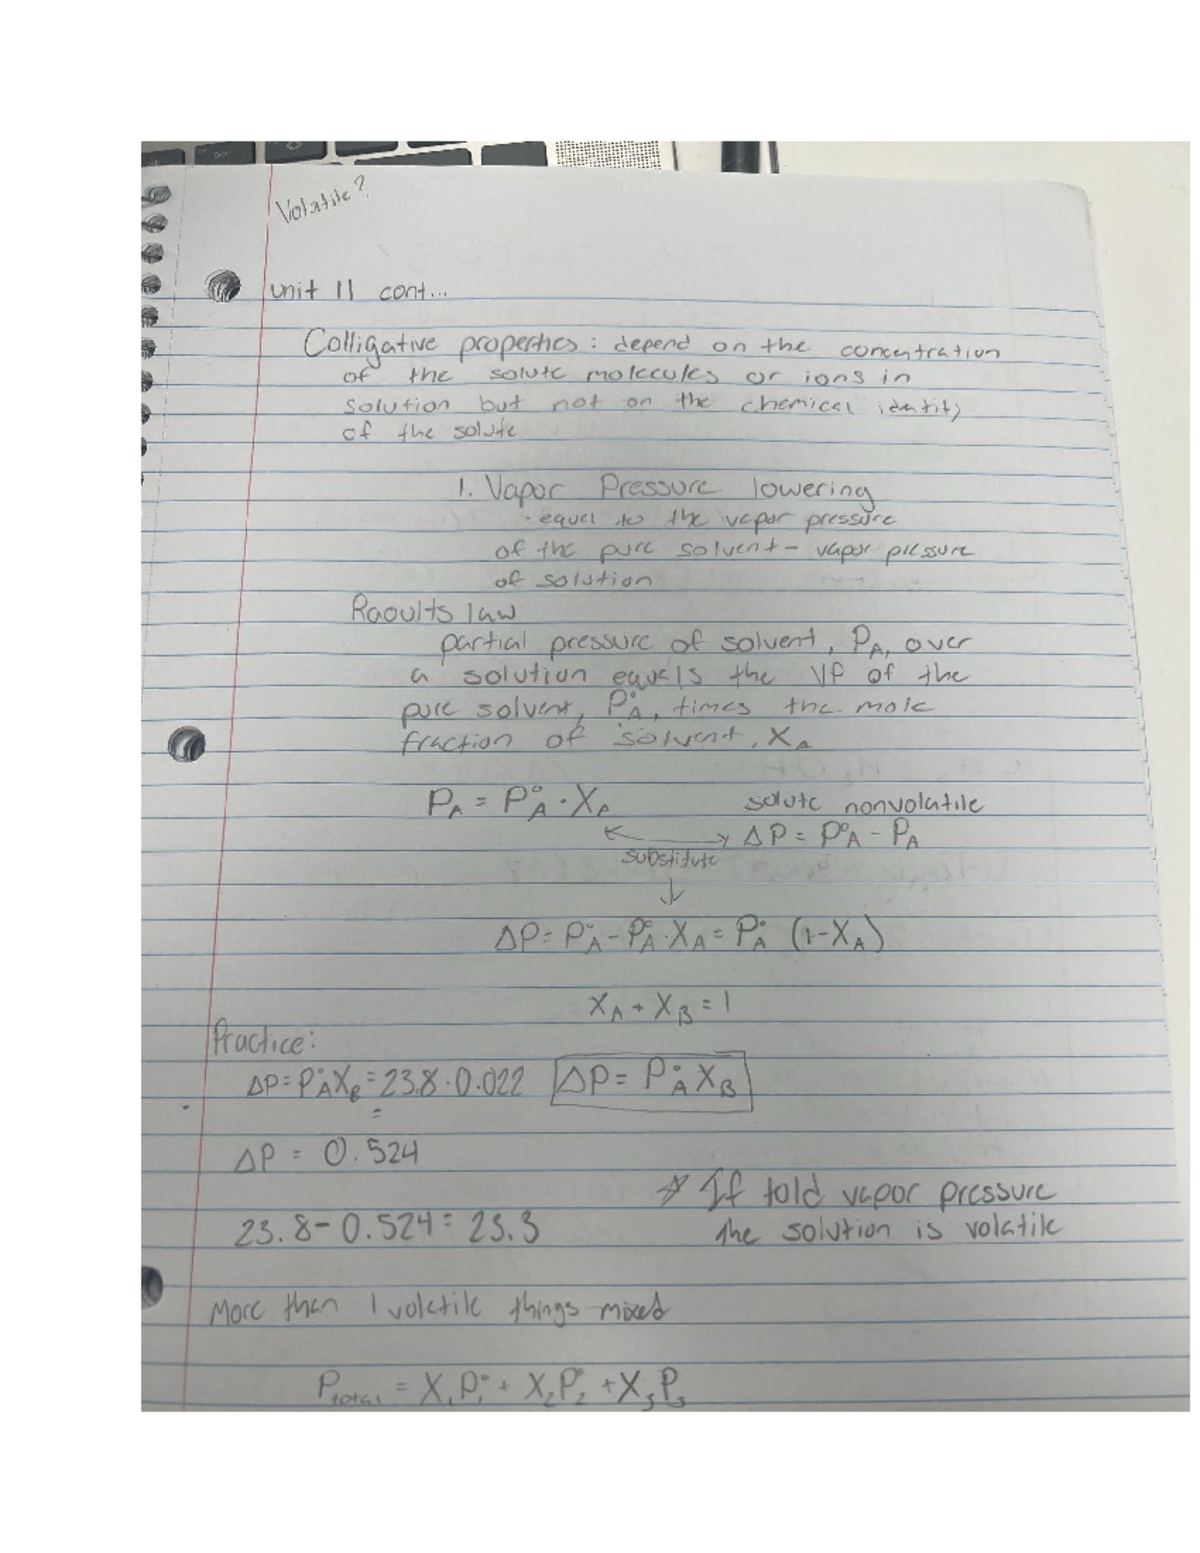 Volatile?
unit 11 cont...
Colligative properties: depend on the concentration
of the solute molecules or ions in
solution but not on the chemical identity
of the solute
1. Vapor Pressure lowering
· equal to the vapor pressure
of the pure solvent - vapor pressure
of solution
Raoults law
partial pressure of solvent, P_A, over
a solution equals the VP of the
pure solvent, P°_A, times the mole
fraction of solvent, X_A
P_A = P°_A · X_A
solute nonvolatile
ΔP = P°_A - P_A
substitute
ΔP = P°_A - P°_A · X_A = P°_A (1-X_A)
X_A + X_B = 1
Practice:
ΔP = P°_A X_B = 23.8 · 0.022
=
ΔP = P°_A X_B
ΔP = 0.524
23.8 - 0.524 = 23.3
☆ If told vapor pressure
the solution is volatile
More than 1 volatile things mixed
P_total = X_1 P°_1 + X_2 P°_2 + X_3 P_3